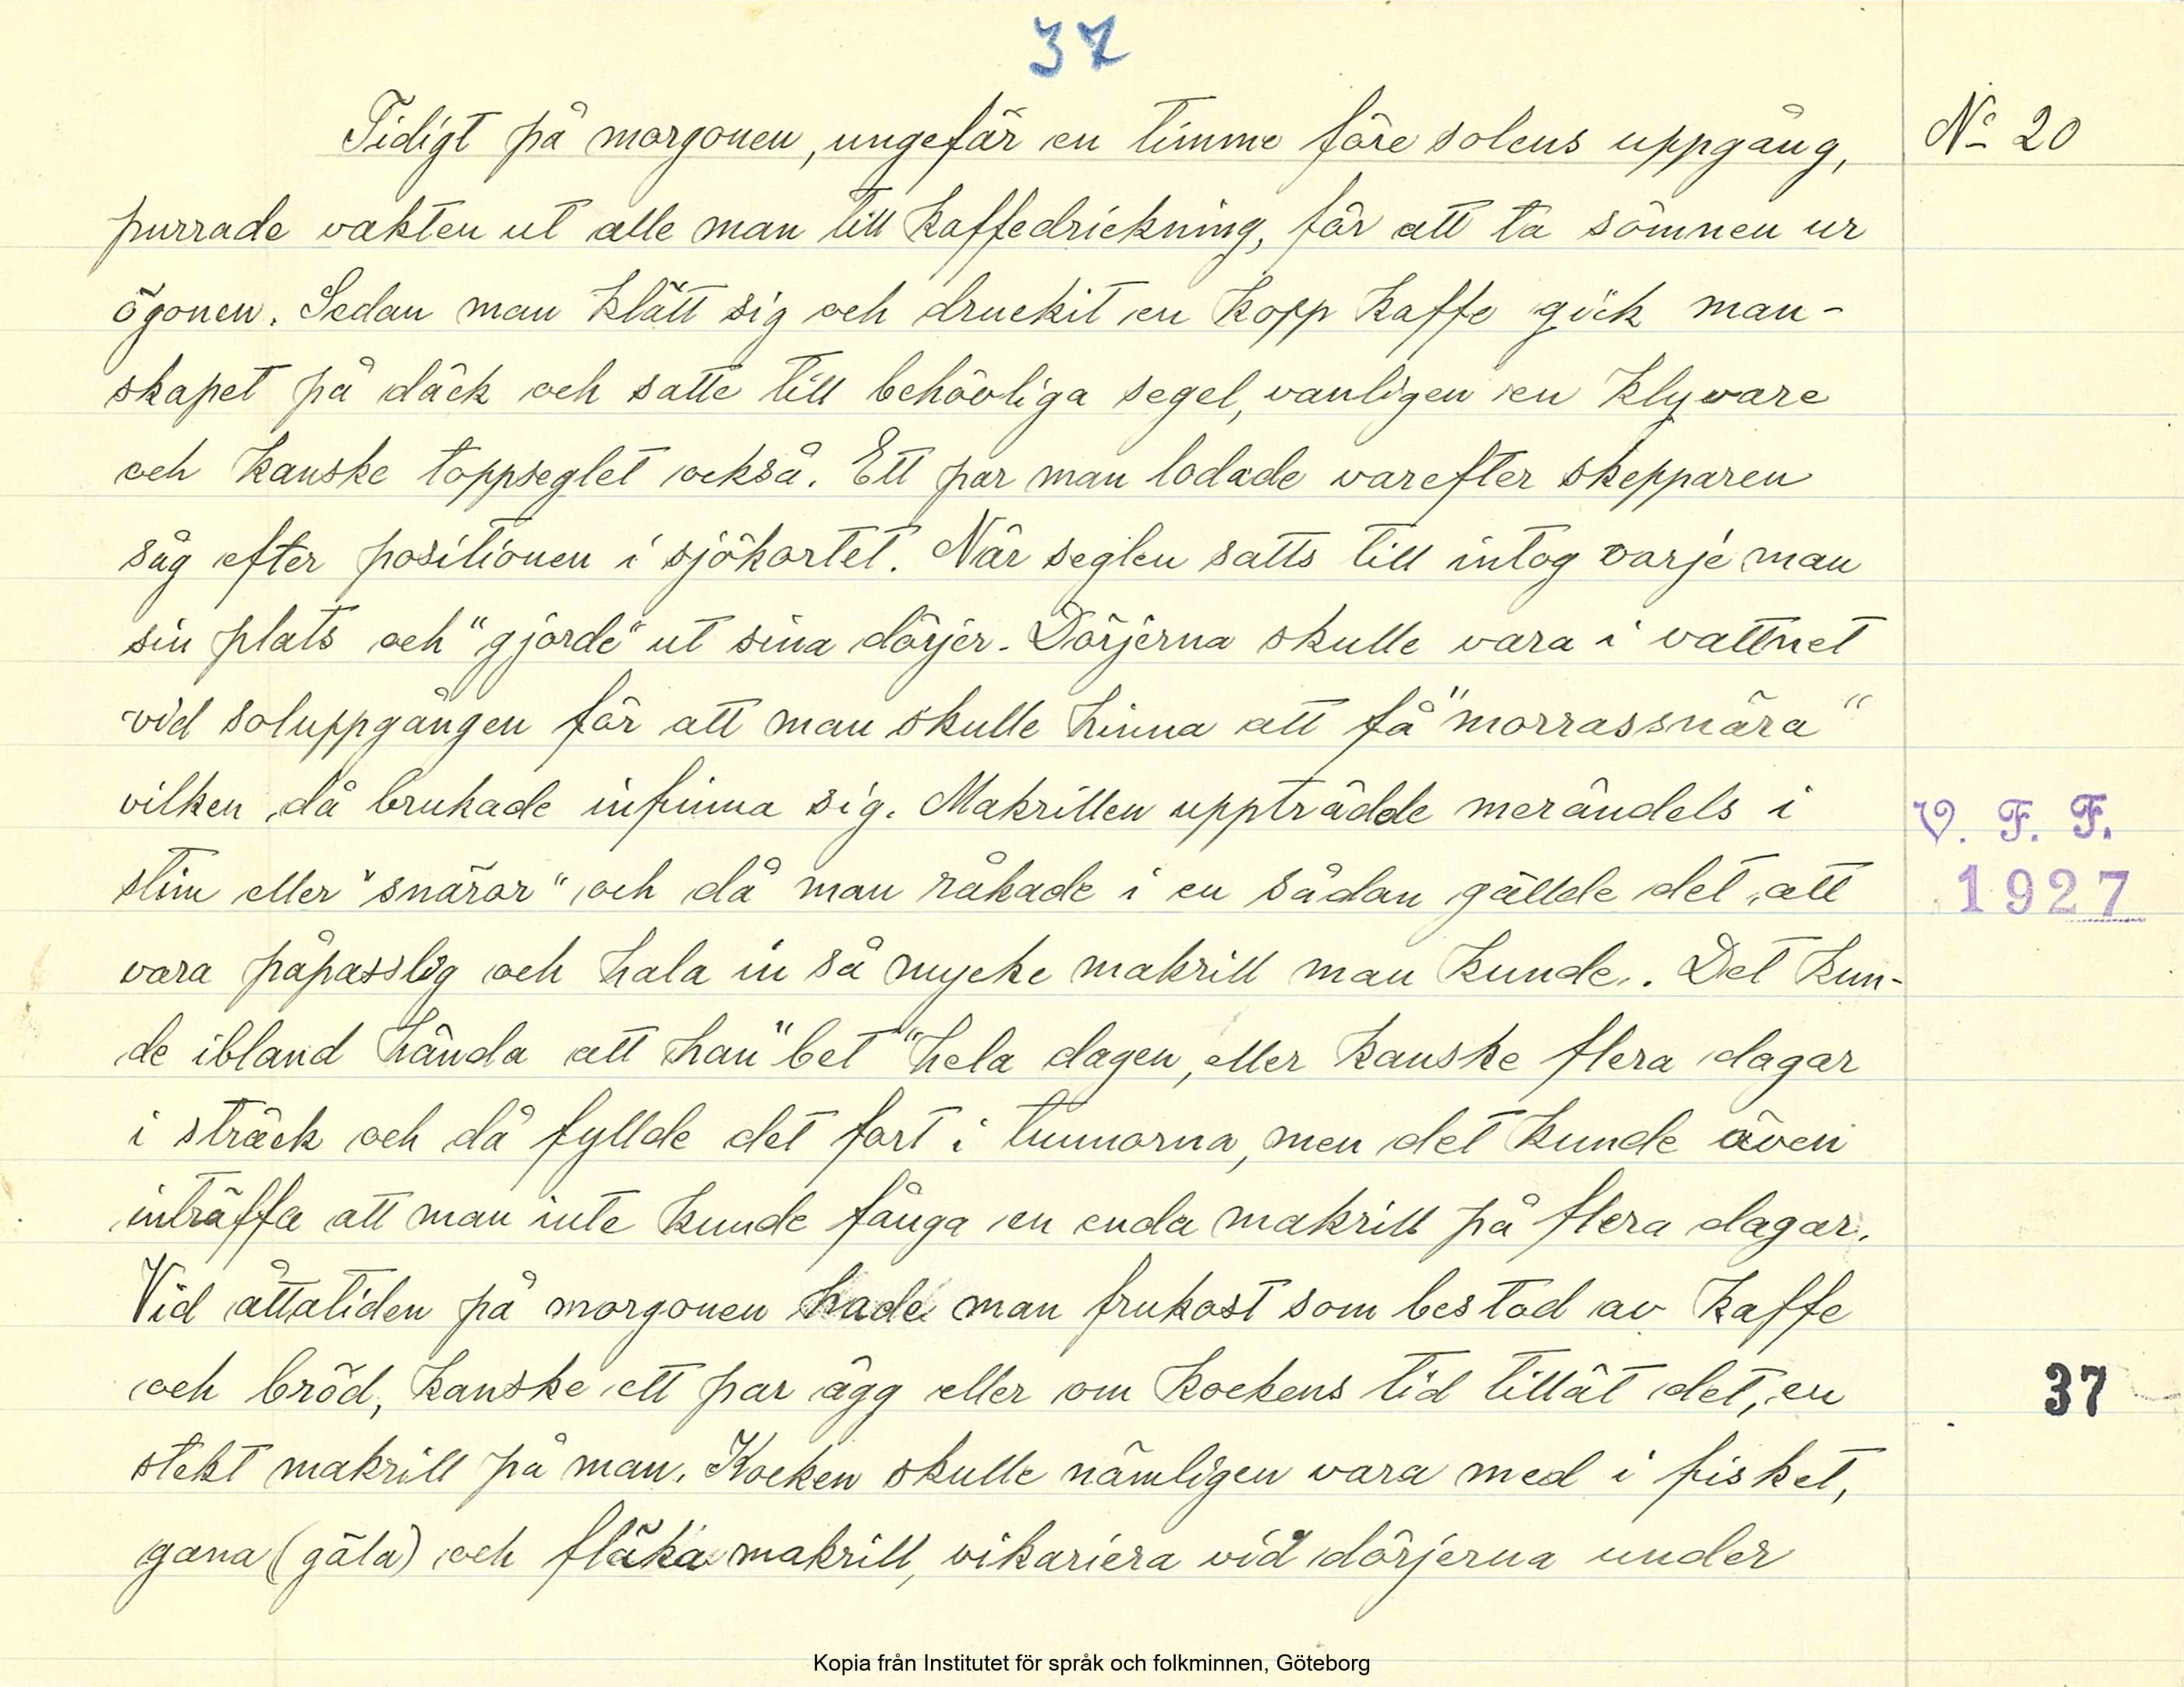 37
Tidigt på morgonen, ungefär en timme före solens uppgång,
No 20
purrade vakten ut alle man till kaffedrickning, för att ta sömnen ur
ögonen. Sedan man klätt sig och druckit en kopp kaffe gick man-
skapet på däck och satte till behövliga segel, vanligen en klyvare
och kanske toppseglet också. Ett par man lodade varefter skepparen
såg efter positionen i sjökortet. När seglen satts till intog varje man
sin plats och "gjorde" ut sina dörjer. Dörjerna skulle vara i vattnet
vid soluppgången för att man skulle hinna att få "morrassnära"
vilken då brukade infinna sig. Makrillen uppträdde merändels i
V. F. F.
stim eller "snäror" och då man råkade i en sådan gällde det att
1927
vara påpasslig och hala in så mycke makrill man kunde. Det kun-
de ibland hända att han "bet" hela dagen, eller kanske flera dagar
i sträck och då fyllde det fort i tunnorna, men det kunde även
inträffa att man inte kunde fånga en enda makrill på flera dagar.
Vid åttatiden på morgonen hade man frukost som bestod av kaffe
och bröd, kanske ett par ägg eller om kockens tid tillät det, en
37
stekt makrill på man. Kocken skulle nämligen vara med i fisket,
gana (gäla) och fläka makrill, vikariera vid dörjerna under
Kopia från Institutet för språk och folkminnen, Göteborg